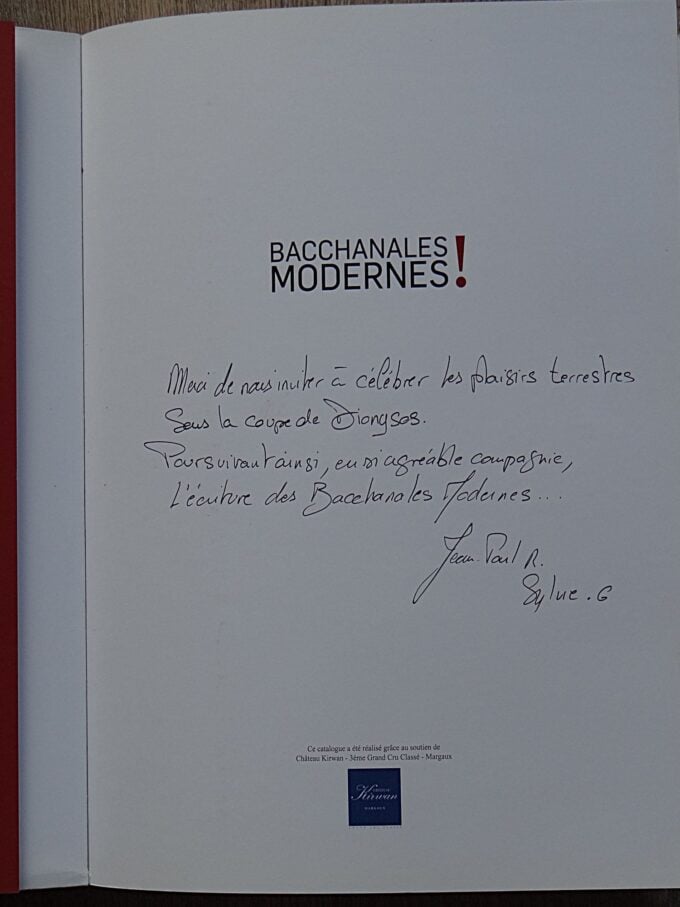 BACCHANALES
MODERNES!
Merci de nous inviter à célébrer les plaisirs terrestres
Sous la coupe de Dionysos.
Poursuivant ainsi, en si agréable compagnie,
L'écriture des Bacchanales Modernes...
Jean-Paul R.
Sylvie.G
Ce catalogue a été réalisé grâce au soutien de
Château Kirwan - 3ème Grand Cru Classé - Margaux
CHÂTEAU
Kirwan
MARGAUX